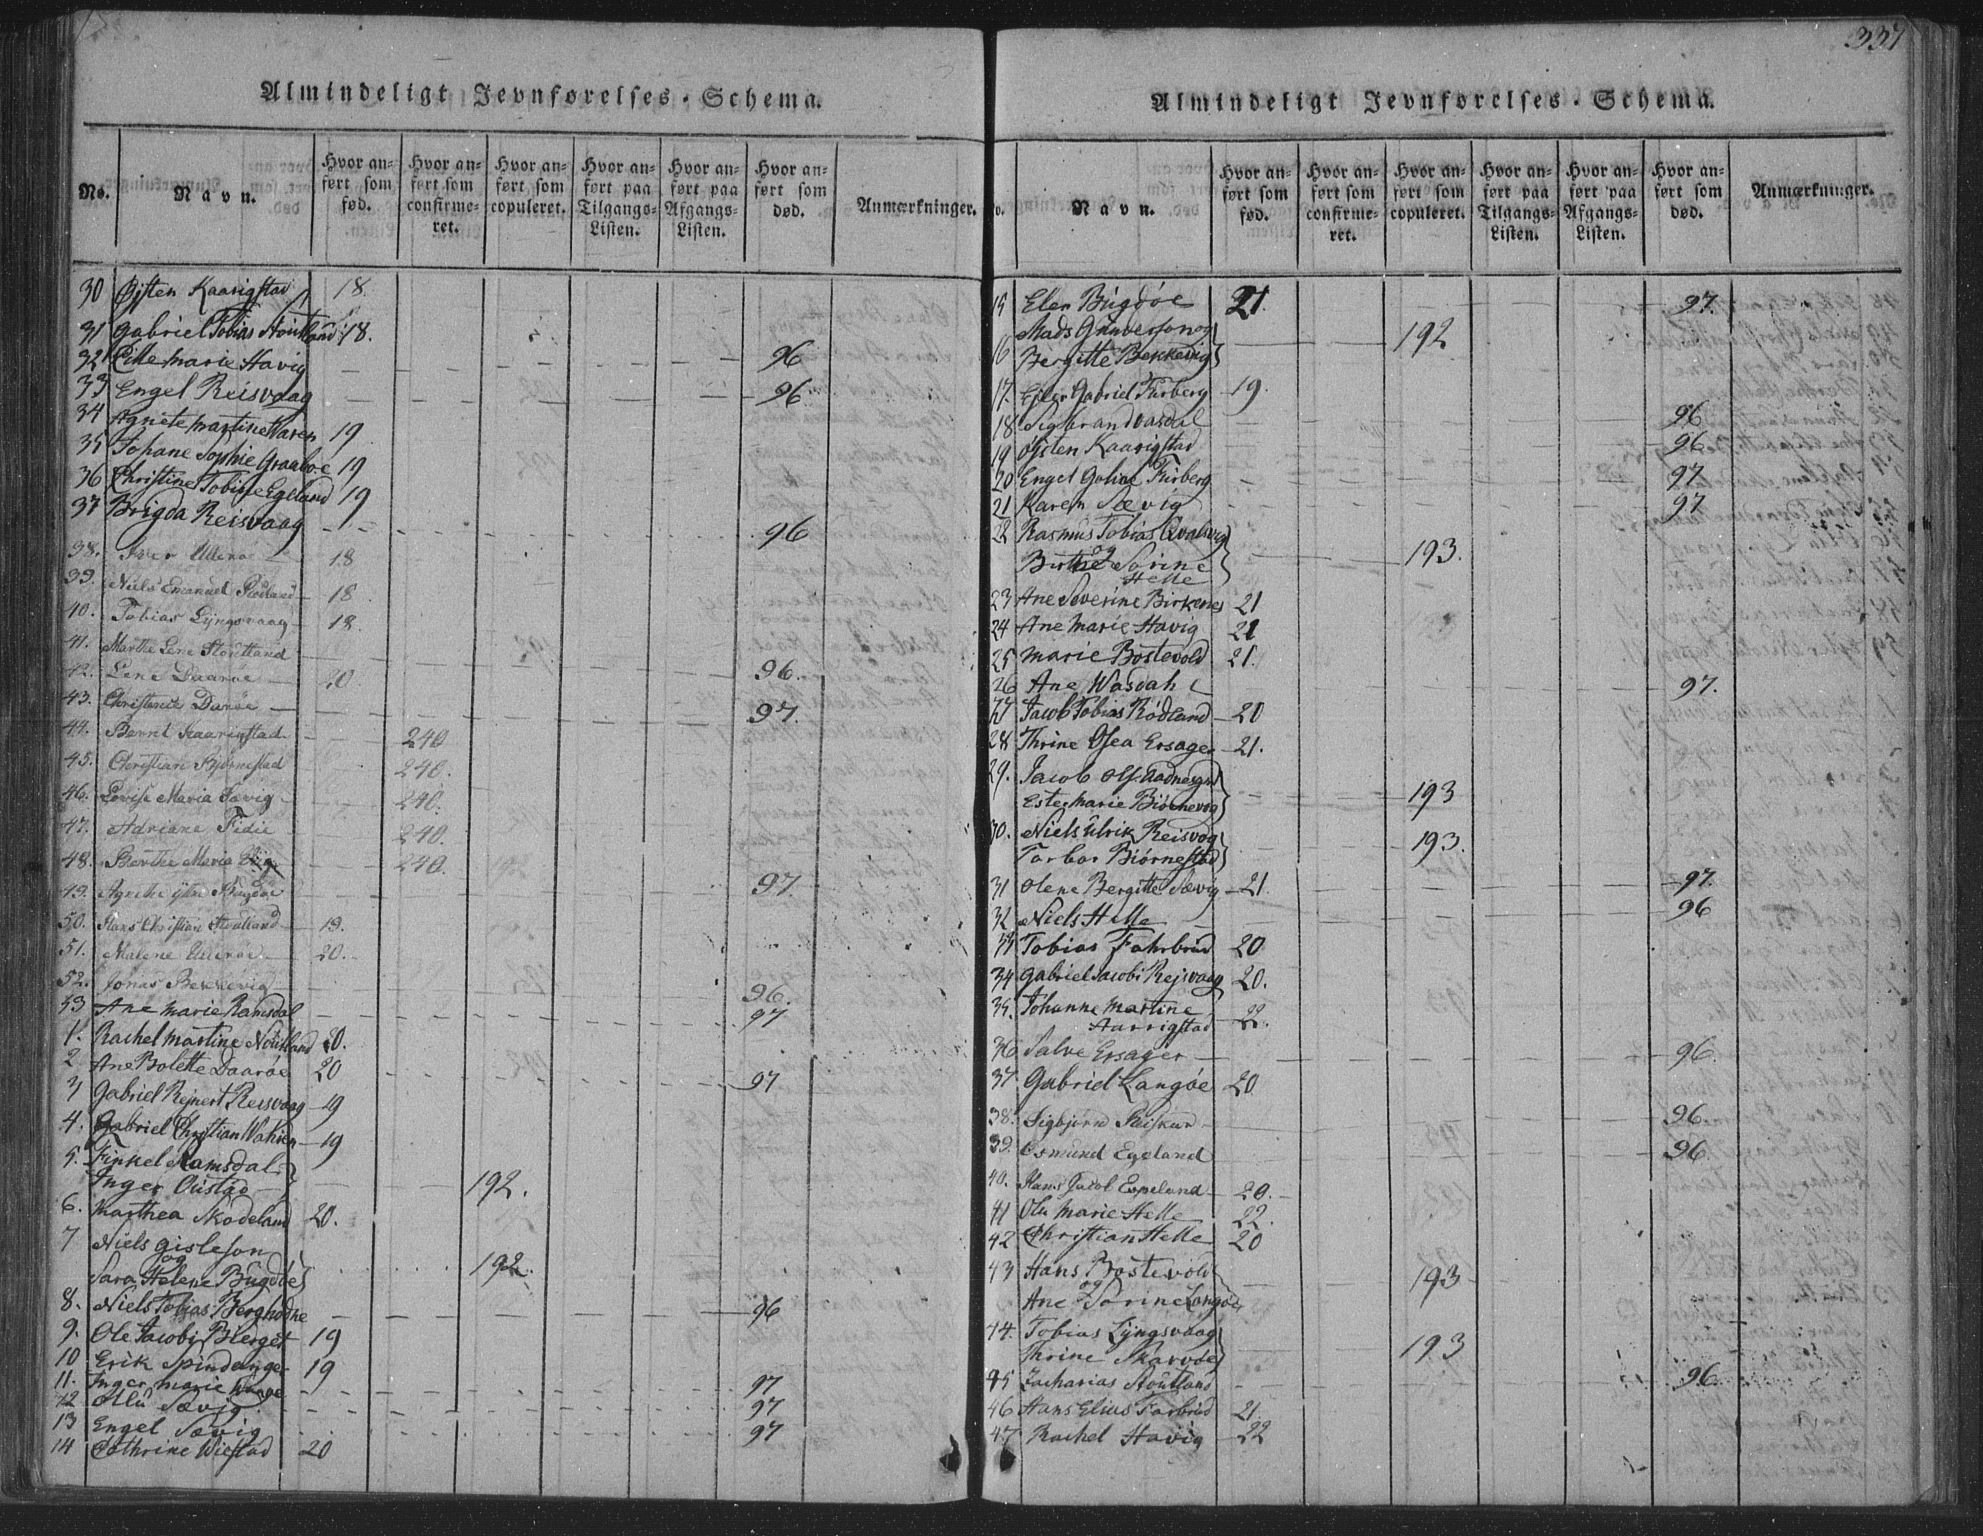 337
Almindeligt Jevnførelses-Schema.
No. Navn. Hvor anført som fød. Hvor anført som confirmeret. Hvor anført som copuleret. Hvor anført paa Tilgangs-Listen. Hvor anført paa Afgangs-Listen. Hvor anført som død. Anmærkninger.
30 Øisten Kaarigstad 18.
31 Gabriel Tobias Stoutland 18.
32 Cille Marie Havig 96
33 Engel Reisvaag 96
34 Agnete Martine Waren 19
35 Johane Sophie Graaboe 19
36 Christine Tobine Egeland 19
37 Brigda Reisvaag 96
38. Iver Ullerøe 18
39. Niels Emanuel Rødland 18
40. Tobias Lyngsvaag 18
41. Marthe Lene Stoutland 96.
42. Lene Daarøe 20
43. Christence Darøe 97.
44. Bernt Kaarigstad 240
45. Christian Biørnestad 240.
46. Lovise Maria Sævig 240.
47. Adriane Fidie 240.
48. Berthe Maria 240.
49. Agnethe Bugdøe 97.
50. Hans Christian Stoutland 19.
51. Malene Ullerøe 20.
52. Jonas Bekkevig 96.
53 Ane Marie Ramsdal 97
1. Rachel Martine Noutland 20.
2 Ane Bolette Daarøe 20 97
3 Gabriel Rejnert Reisvaag 19
4. Gabriel Christian Wahren 19
5. Finkel Ramsdal
Inger Oustad 192.
6. Marthea Skodeland 20.
7 Niels Gisleson
og
Sara Helene Bugdøe 192.
8. Niels Tobias Berghodne 96
9. Ole Jacobi Bierget 19
10 Erik Spindanger 19
11. Inger Marie 97
12 Ollu Sævig 97
13 Engel Sævig 97
14 Cathrine Wiestad 20
Almindeligt Jevnførelses-Schema.
No. Navn. Hvor anført som fød. Hvor anført som confirmeret. Hvor anført som copuleret. Hvor anført paa Tilgangs-Listen. Hvor anført paa Afgangs-Listen. Hvor anført som død. Anmærkninger.
15 Elen Bugdøe 21. 97.
Mads Gunverson og
16 Bergitte Bekkevig 192
17. Eiler Gabriel Furberg 19.
18 Sigbrand Vasdal 96
19 Øysten Kaarigstad 96
20 Engel Goline Furberg 97
21 Karen Sævig 97
22 Rasmus Tobias Qvalsvig
og
Birthe Sorine 193.
Helle
23 Ane Severine Birkenes 21
24 Ane Marie Havig 21
25 Marie Bostevold 21.
26 Ane Wasdahl 97.
27 Jacob Tobias Rødland 20
28 Thrine Osea Ersager 21.
29. Jacob
Este Marie Biørnevog 193
30. Niels Ulrik Reisvog
Tarbor Biørnestad 193.
31 Olene Bergitte Sævig 21. 97.
32 Niels Helle 96
33 Tobias Fahrbrud 20
34 Gabriel Jacobi Rejsvaag 20.
35. Johanne Martine
Aarrigstad 22.
36 Salve Ersager 96
37 Gabriel Langøe 20
38. Sigbjørn 96.
39. Osmund Egeland 96
40. Hans Jacob Espeland 20.
41 Olu Marie Helle 22.
42 Christian Helle 20
43 Hans Bostevold
og 193
Ane Sorine Langøe
44. Tobias Lyngsvaag
Thrine Skarvøe 193
45 Zacharias Stoutland 96
46 Hans Elius Farbrud 21
47 Rachel Havig 22